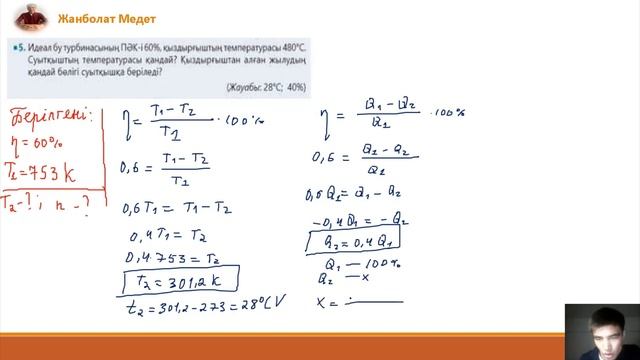 Жанболат Медет
5. Идеал бу турбинасының ПӘК-і 60%, қыздырғыштың температурасы 480°С.
Суытқыштың температурасы қандай? Қыздырғыштан алған жылудың
қандай бөлігі суытқышқа беріледі?
(Жауабы: 28°С; 40%)
Берілгені:
η = 60%
T₁ = 753 k
T₂ - ? ; n - ?
η = (T₁ - T₂)/T₁ · 100%
0,6 = (T₁ - T₂)/T₁
0,6 T₁ = T₁ - T₂
0,4 T₁ = T₂
0,4 · 753 = T₂
T₂ = 301,2 k
t₂ = 301,2 - 273 = 28°C V
η = (Q₁ - Q₂)/Q₁ · 100%
0,6 = (Q₁ - Q₂)/Q₁
0,6 Q₁ = Q₁ - Q₂
-0,4 Q₁ = - Q₂
Q₂ = 0,4 Q₁
Q₁ — 100%
Q₂ — x
x =